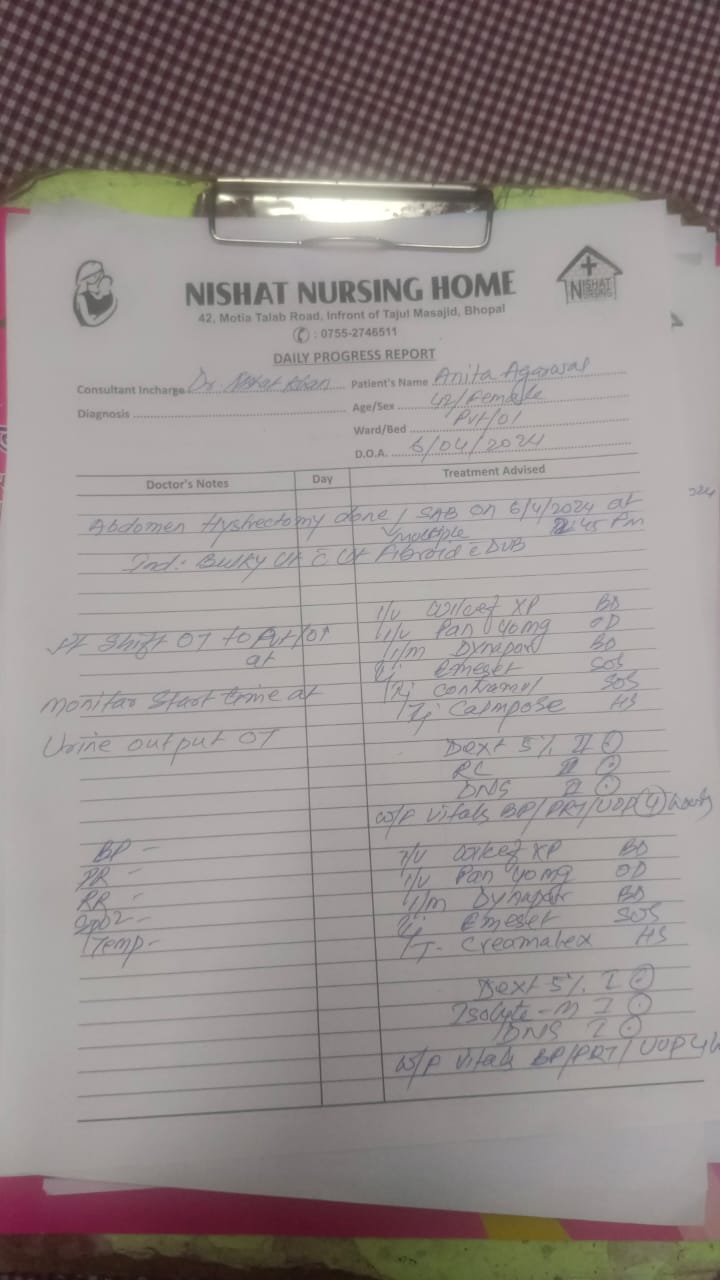 NISHAT NURSING HOME
NISHAT
NURSING
42, Motia Talab Road, Infront of Tajul Masajid, Bhopal
✆ : 0755-2746511
DAILY PROGRESS REPORT
Consultant Incharge Dr. Khan Patient's Name Anita Agarawal
Diagnosis Age/Sex 42/Female
Ward/Bed Pvt/01
D.O.A. 6/04/2024
Doctor's Notes Day Treatment Advised
Abdomen Hystrectomy done / SAB on 6/4/2024 at
multiple 45 Pm
Ind:- Bulky Ut c Ut Fibroid c DUB
I/V XP BD
Pt Shift OT to Pvt/01 I/V Pan 40mg OD
at I/m Dynapar BD
Inj Emeset SOS
Monitar Start time at Inj Contramol SOS
Inj Calmpose HS
Urine output OT
Dext 5% II
RL II
DNS II
w/f vitals BP/PRT/UOP 4 hourly
BP - I/V XP BD
PR - I/V Pan 40mg OD
RR - I/m Dynapar BD
SpO2 - Inj Emeset SOS
Temp - T- HS
Dext 5% I
Isolyte-M I
DNS I
w/f vitals BP/PRT/UOP 4